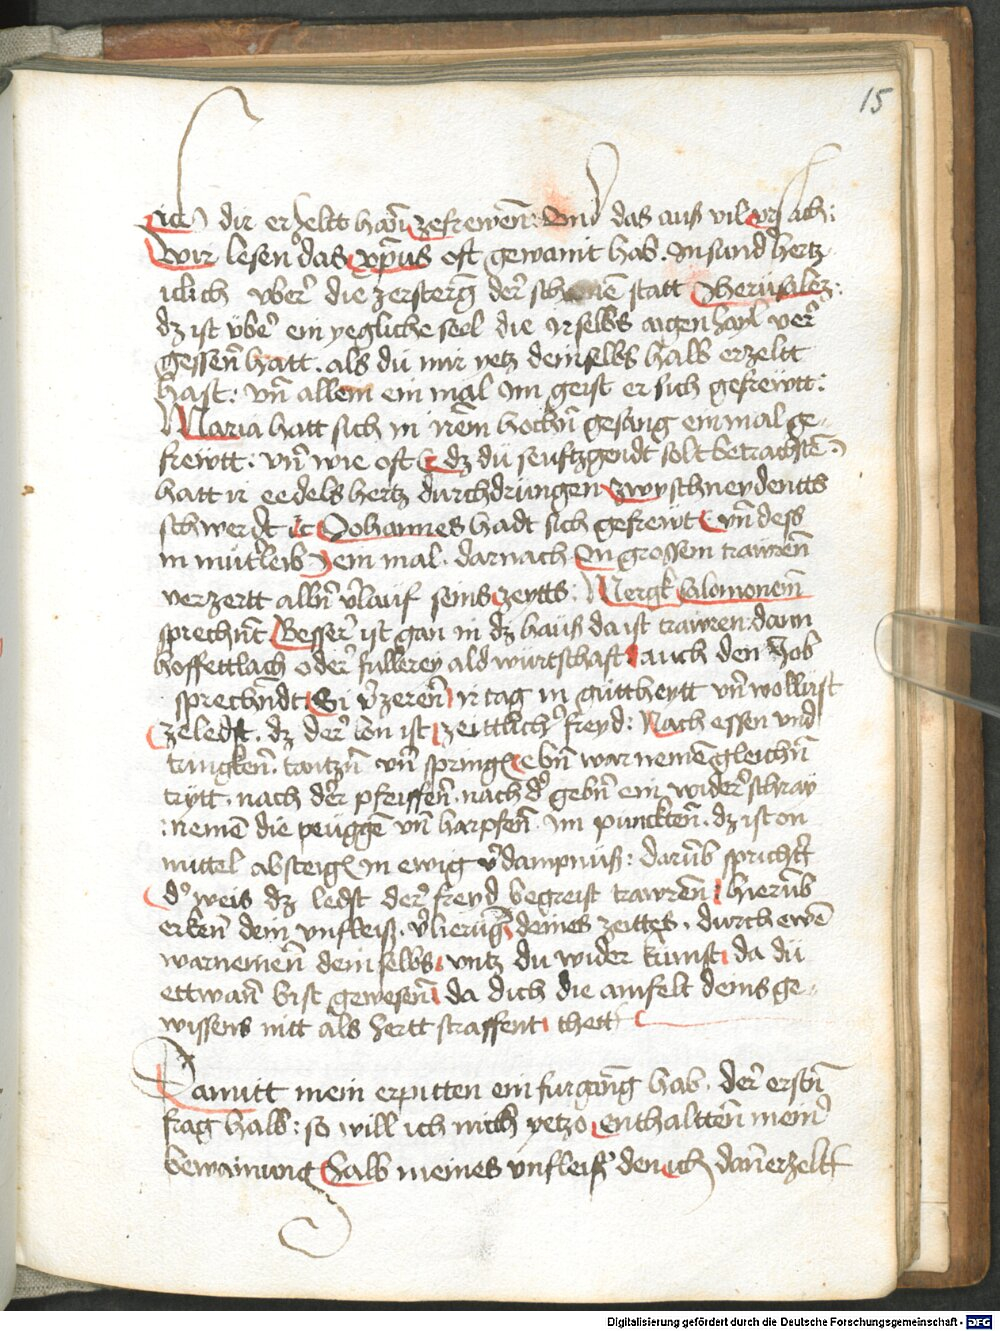 15
ich dir erzeltt han zefrewen: Und das auß vil ursach:
Wir lesen das xp̄us oft gewaint hab. Insund hertz
iclich vber die zersterūg der schonē statt Jherusalez:
dz ist vber ein yegliche seel die irselbs aigen hayl ver
gessen hatt. als du mir yetz deinselbs halb erzeltt
hast: vn̄ allein ein mal im geist er sich gefrewtt:
Maria hatt sich in irem hochn̄ gesang ein mal ge-
frewtt. vn̄ wie oft dz du seuftzgendt solt betrachtē
hatt ir eedels hertz durchdrungen zwyschneydentts
schwerdt ic Johannes hadt sich gefrewt vn̄ dess
in mutterleib ein mal. darnach In grossem trawren
verzertt alln̄ v̄lauf seins zeytts: Mergk Salomonem
sprechn̄t Besser ist gan in dz hauß da ist trawren: dann
hoffettlach oder fullerey ald würtschaft auch den Job
sprechn̄dt Si v̄zeren ir tag in guttheytt vn̄ wollust
zeledst. dz der lon ist zeittlicher freyd: Nach essen vnd
tringken. tantzn̄ vn̄ spring ebn̄ war nemē gleichn̄
trytt. nach der pfeiffen. nach dē gebn̄ ein widerschray
:nemē die peuggē vn̄ harpfen. im punckten. dz ist on
mittel absteig in ewig v̄dampnuß: darūb spricht
dē weis dz ledst der freyd begreift trawren hierūb
erken dein vnfleiß. v̄lierūg deines zeittes. durch ewē
warnemen dein selbs vntz du wider kumst da du
ettwan̄ bist gewesen da dich die amfelt deins ge-
wissens nitt als hertt straffent thett
Damitt mein erpitten ein furgang hab. der erstn̄
frag halb: so will ich mich yetzo enthaltten meiner
bewainung halb meines vnfleiß den ich dan erzeltt
Digitalisierung gefördert durch die Deutsche Forschungsgemeinschaft - DFG